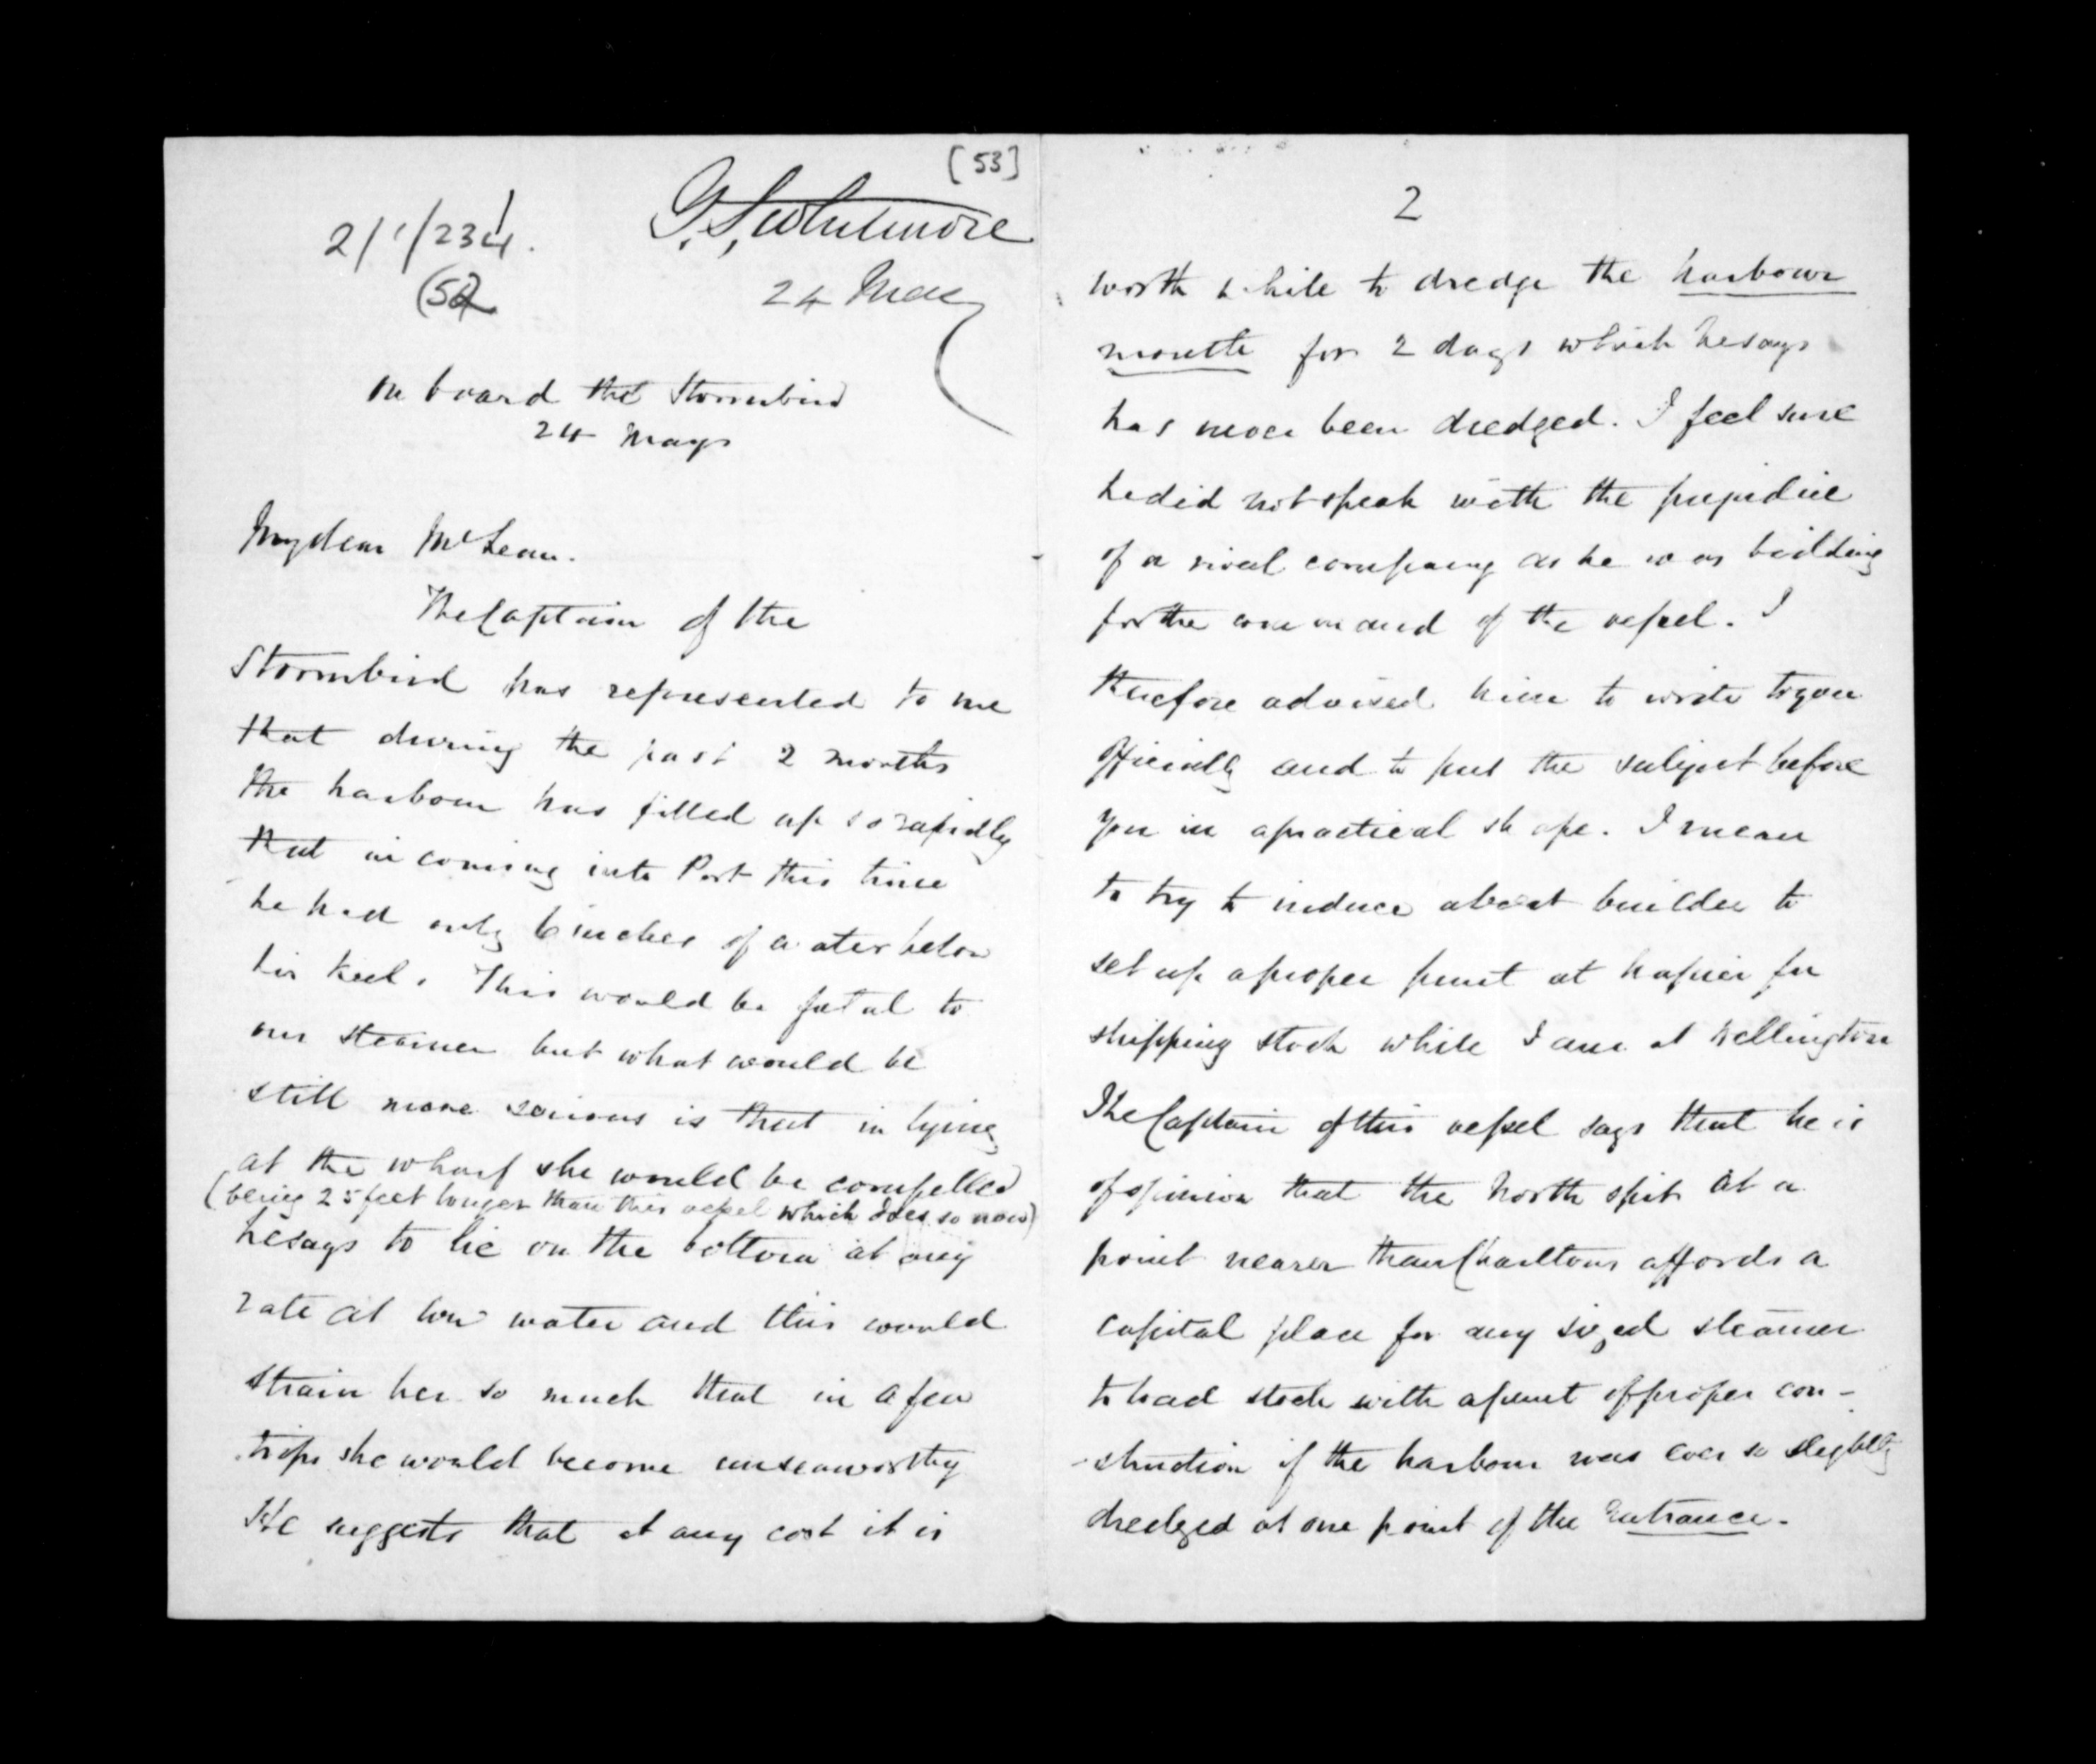 [53]
2/1/234.
(52
G. S. Whitmore
24 May
On board the Stormbird
24 May
My dear McLean.
The Captain of the
Stormbird has represented to me
that during the past 2 months
the harbour has filled up so rapidly
that in coming into Port this time
he had only 6 inches of water below
his keel. This would be fatal to
our steamer but what would be
still more serious is that in lying
at the wharf she would be compelled
(being 25 feet longer than this vessel which does so now)
he says to lie on the bottom at any
rate at low water and this would
strain her so much that in a few
trips she would become unseaworthy
He suggests that at any cost it is
2
worth while to dredge the harbour
mouth for 2 days which he says
has never been dredged. I feel sure
he did not speak with the prejudice
of a rival company as he was bidding
for the command of the vessel. I
therefore advised him to write to you
officially and to put the subject before
you in a practical shape. I mean
to try to induce a boat builder to
set up a proper punt at Napier for
shipping stock while I am at Wellington
The Captain of this vessel says that he is
of opinion that the North spit at a
point nearer than Charltons affords a
capital place for any sized steamer
to load stock with a punt of proper con-
-struction if the harbour was ever so slightly
dredged at one point of the entrance.